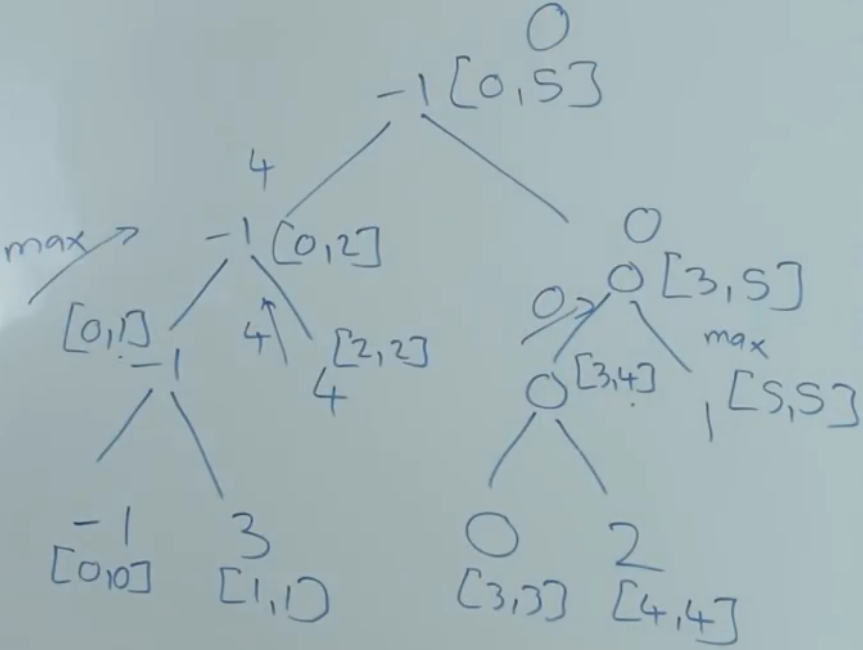 0
-1 [0,5]
4
max
-1 [0,2]
0
0 [3,5]
[0,1]
-1
4
[2,2]
4
0
0 [3,4]
max
1 [5,5]
-1
[0,0]
3
[1,1]
0
[3,3]
2
[4,4]